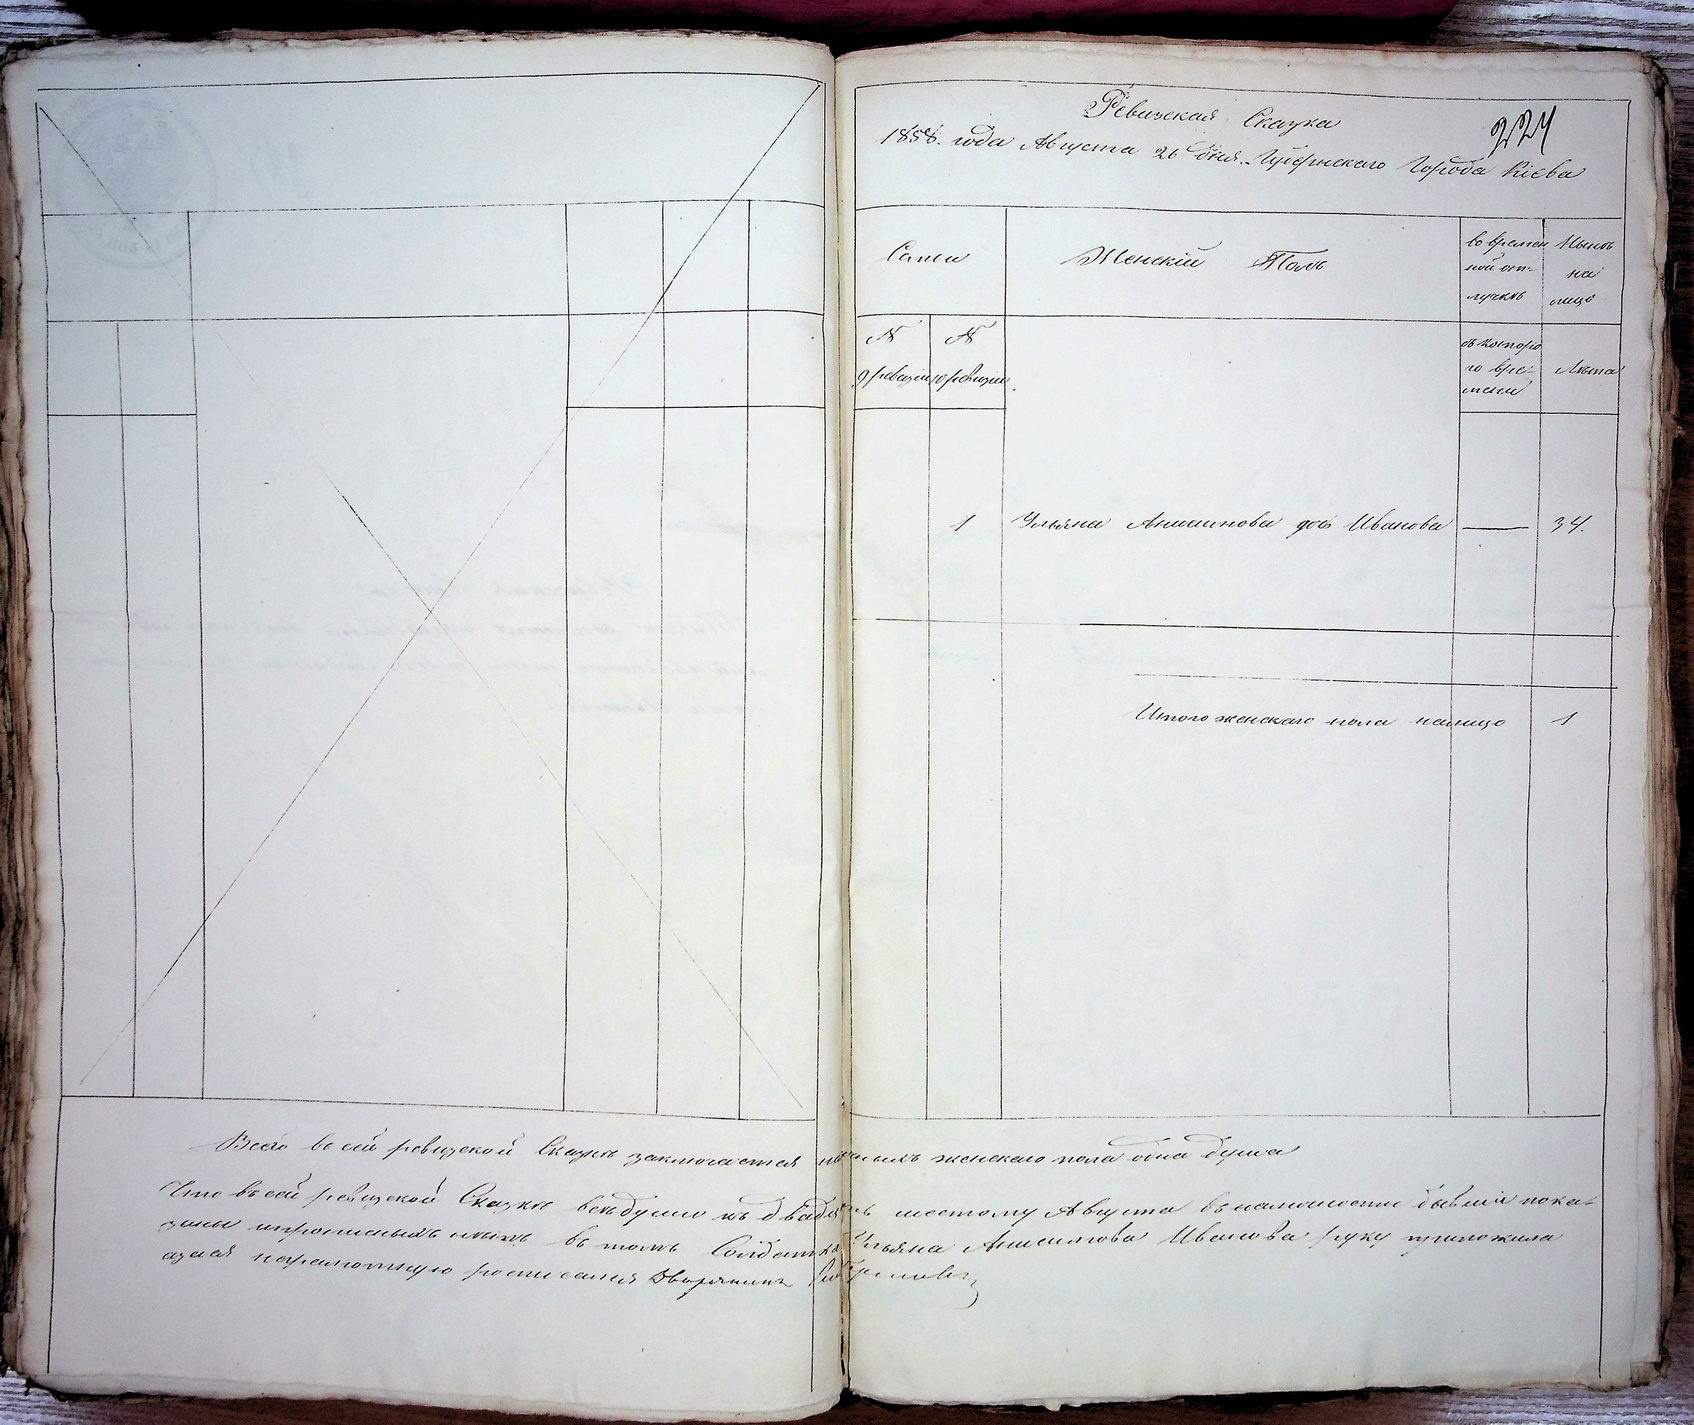 Ревизская Сказка
224
1858. года Августа 26 дня. Губернскаго Города Кіева
Семьи
Женскій Полъ
во времен
ной от-
лучкѣ
Нынѣ
на
лицо
№
9 ревизіи
№
10 ревизіи
съ которо
го вре-
мени
Лѣта
1 Ульяна Анисимова доч Иванова — 34.
Итого женскаго пола налицо 1
Всего в сей ревизской Сказкѣ заключается женскаго пола одна душа
Что в сей ревизской Сказкѣ всѣ души къ двадцать шестому Августа въ наличности бывшія пока-
заны и прописныхъ нѣтъ въ томъ Солдатка Ульяна Анисимова Иванова руку приложила
а за нея неграмотную росписался Дворянинъ